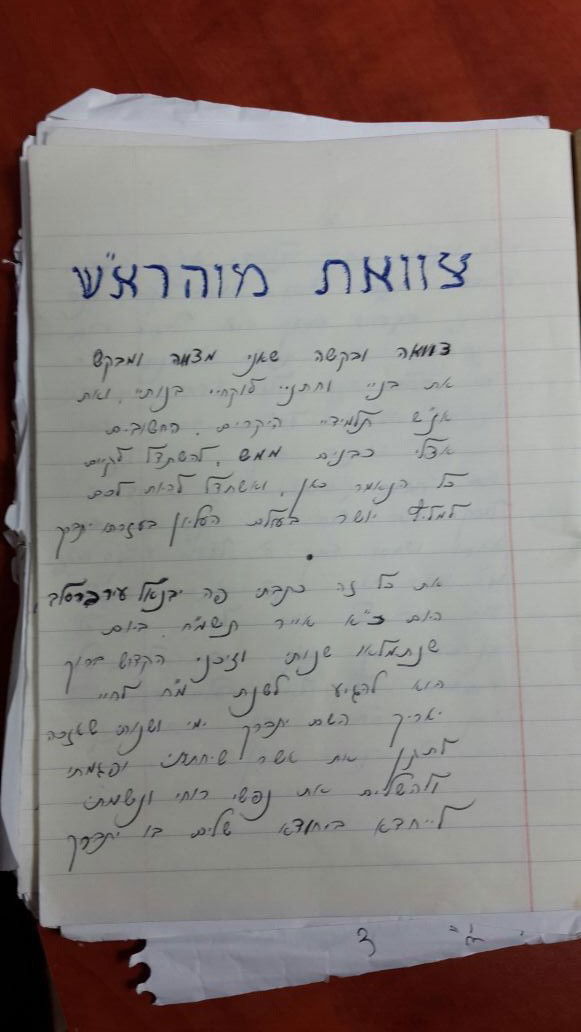 צוואת מוהרא"ש
צוואה ובקשה שאני מצוה ומבקש
את בניי וחתניי לוקחיי בנותיי, ואת
אנ"ש תלמידיי היקרים, החשובים
אצלי כבנים ממש, להשתדל לקיים
כל הנאמר כאן, ואשתדל להיות לכם
למליץ יושר בעולם העליון בעזרתו יתברך
את כל זה כתבתי פה יבנאל עיר ברסלב
היום כ"א אייר תשמ"ח, ביום
שנתמלאו שנותי וזיכני הקדוש ברוך
הוא להגיע לשנת מ"ח לחיי
יאריך השם יתברך ימי ושנותי שאזכה
לתקן את אשר שיחתתי ופגמתי
ולהשלים את נפשי רוחי ונשמתי
לייחדא ביחודא שלים בו יתברך